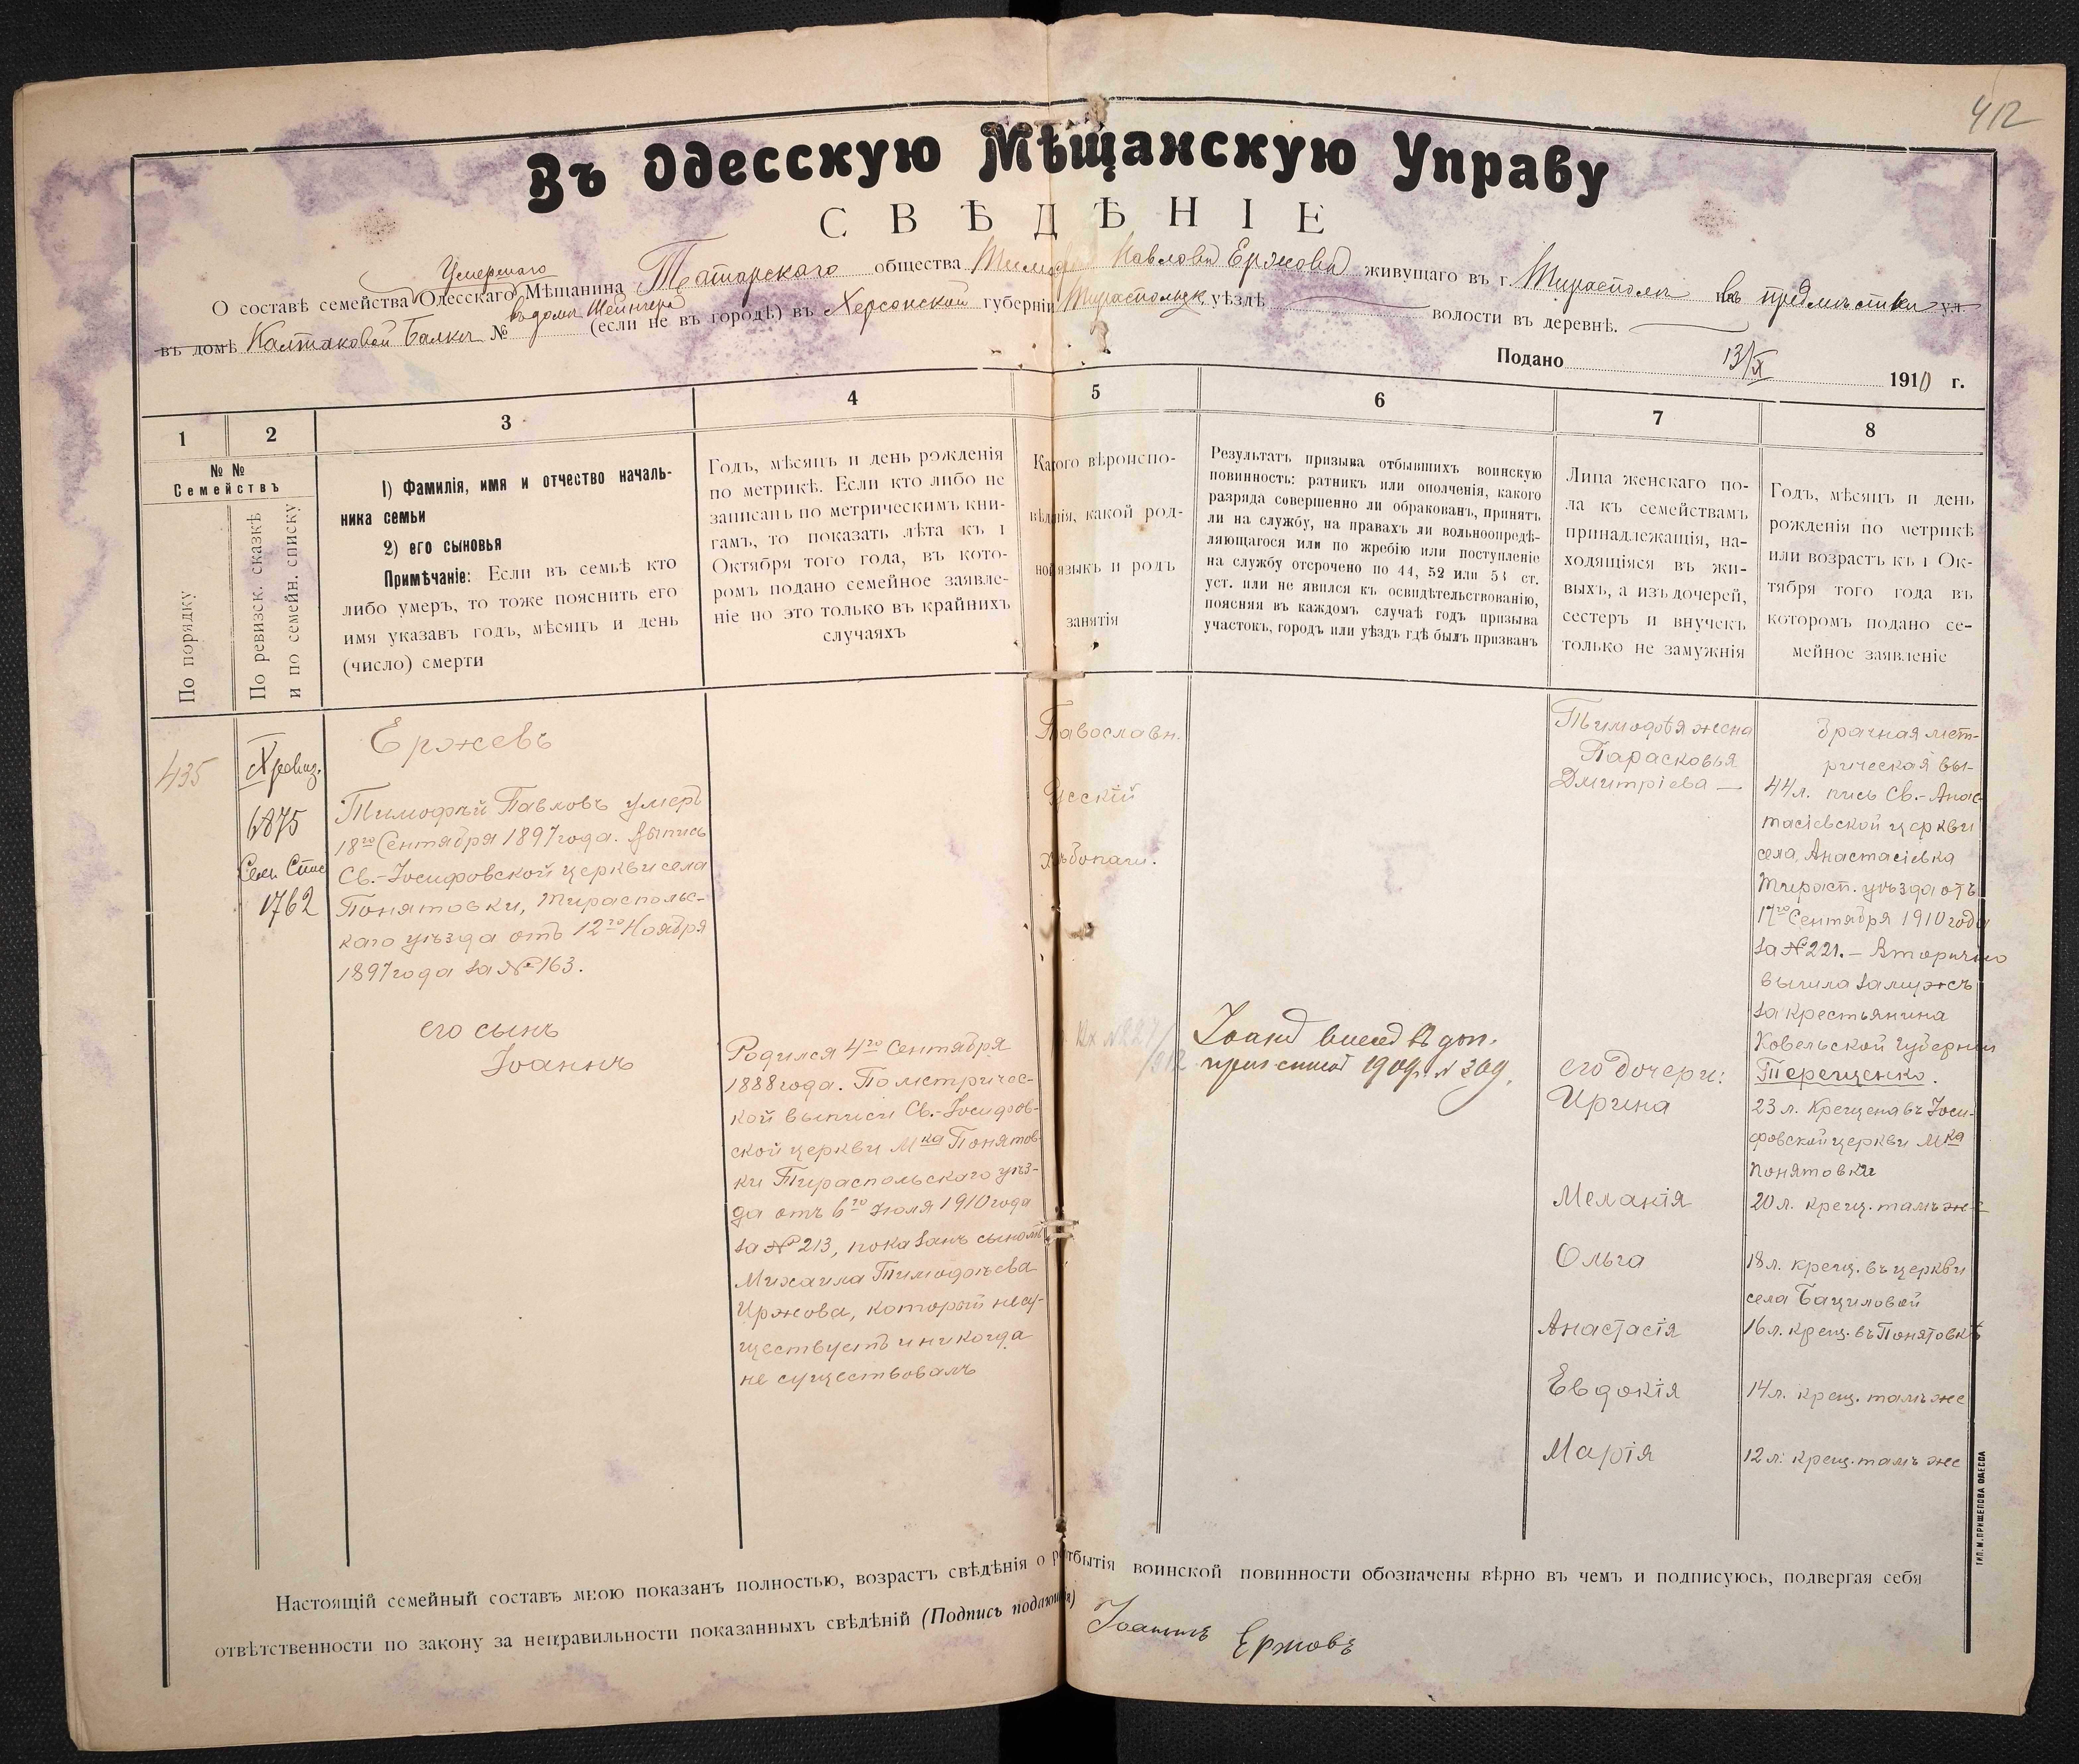 412
Въ Одесскую Мѣщанскую Управу
СВѢДѢНІЕ
Умершаго
О составѣ семейства Одесскаго Мѣщанина Татарскаго общества Павлова Ержова живущаго въ г. Тирасполѣ на предмѣстьи ул.
въ домѣ Колтаковой Балкѣ № въ домѣ Шейнгера (если не въ городѣ) въ Херсонской губерніи Тираспольск. уѣздѣ волости въ деревнѣ.
Подано 13/X 1910 г.
1
2
3
4
5
6
7
8
№ №
Семействъ
По порядку
По ревизск. сказкѣ
и по семейн. списку
1) Фамилія, имя и отчество началь-
ника семьи
2) его сыновья
Примѣчаніе: Если въ семьѣ кто
либо умеръ, то тоже пояснить его
имя указавъ годъ, мѣсяцъ и день
(число) смерти
Годъ, мѣсяцъ и день рожденія
по метрикѣ. Если кто либо не
записанъ по метрическимъ кни-
гамъ, то показать лѣта къ 1
Октября того года, въ кото-
ромъ подано семейное заявле-
ніе но это только въ крайнихъ
случаяхъ
Какого вѣроиспо-
вѣданія, какой род-
ной языкъ и родъ
занятія
Результатъ призыва отбывшихъ воинскую
повинность: ратникъ или ополченія, какого
разряда совершенно ли обракованъ, принятъ
ли на службу, на правахъ ли вольноопредѣ-
ляющагося или по жребію или поступленіе
на службу отсрочено по 44, 52 или 53 ст.
уст. или не явился къ освидѣтельствованію,
поясняя въ каждомъ случаѣ годъ призыва
участокъ, городъ или уѣздъ гдѣ былъ призванъ
Лица женскаго по-
ла къ семействамъ
принадлежащія, на-
ходящіяся въ жи-
выхъ, а изъ дочерей,
сестеръ и внучекъ
только не замужнія
Годъ, мѣсяцъ и день
рожденія по метрикѣ
или возрастъ къ 1 Ок-
тября того года въ
которомъ подано се-
мейное заявленіе
435
X ревиз.
6875
Сем. Спис
1762
Ержевъ
Тимофѣй Павловъ умеръ
18го Сентября 1897 года. Выпись
Св.-Іосифовской церкви села
Понятовки, Тираспольс-
каго уѣзда отъ 12го Ноября
1897 года за № 163.
его сынъ
Іоаннъ
Родился 4го Сентября
1888 года. По метричес-
кой выписи Св.-Іосифов-
ской церкви Мка Понятов-
ки Тираспольскаго уѣз-
да отъ 6го Іюля 1910 года
за № 213, показанъ сыномъ
Михаила Тимофѣева
Иржова, который несу-
ществуетъ и никогда
не существовалъ
Православн.
Русскій
Хлѣбопаш.
Вх №227/
912
Іоанъ внесенъ въ доп.
приз списокъ 1909 г. № 309.
Тимофѣя жена
Парасковья
Дмитріева —
его дочери:
Ирина
Меланія
Ольга
Анастасія
Евдокія
Марія
Брачная мет-
рическая вы-
44 л. пись Св.-Анас-
тасіевской церкви
села Анастасіевка
Тирасп. уѣзда отъ
17го Сентября 1910 года
за № 221. — Вторично
вышла замужъ
за крестьянина
Ковельской губерніи
Терещенко.
23 л. Крещена въ Іоси-
фовской церкви Мка
Понятовки
20 л. крещ. тамъ же
18 л. крещ. въ церкви
села Бациловой
16 л. крещ. въ Понятовкѣ
14 л. крещ. тамъ же
12 л. крещ. тамъ же
Настоящій семейный составъ мною показанъ полностью, возрастъ свѣдѣнія о отбытія воинской повинности обозначены вѣрно въ чемъ и подписуюсь, подвергая себя
отвѣтственности по закону за неправильности показанныхъ свѣдѣній (Подпись подающія) Іоаннъ Ержовъ
ТИП. М. ПРИЩЕПОВА ОДЕССА